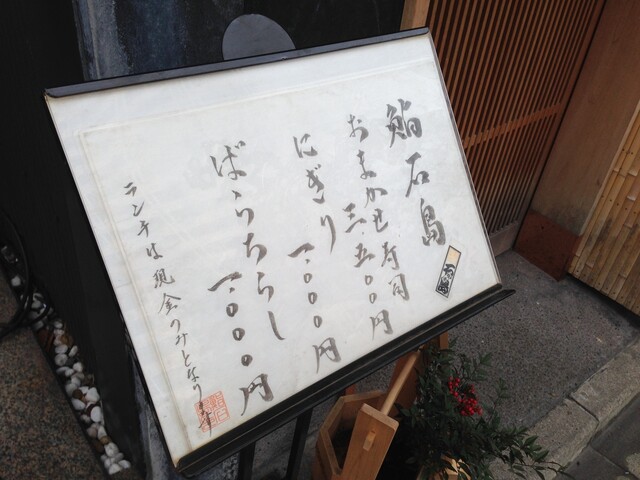 鮨石島
おまかせ寿司
三五〇〇円
にぎり
一〇〇〇円
ばらちらし
一〇〇〇円
ランチは現金のみとなります